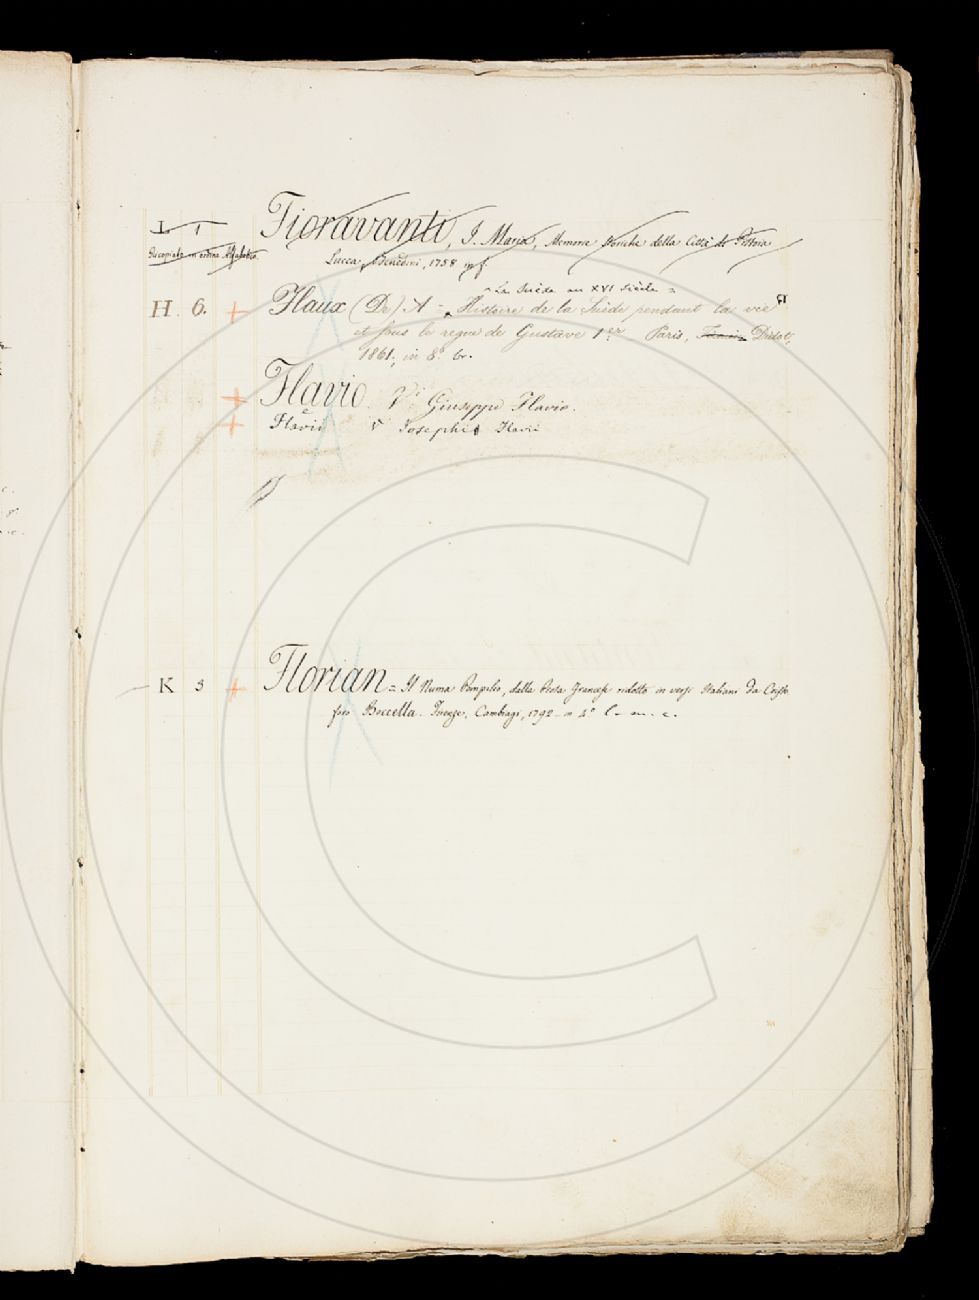 L. 1 Fioravanti, J. Maria, Memorie storiche della Città di Pistoia
Ricopiato in ordine Alfabetico.
Lucca, Benedini, 1758 in f.
La Suède au XVI Siècle =
H. 6. + Flaux (De) A = Histoire de la Suède pendant la vie
et sous le regne de Gustave 1er - Paris, Didot,
1861, in 8° br.
+ Flavio. V. Giuseppe Flavio.
+ Flavii V Josephi Flavii
K 3 + Florian = Il Numa Pompilio, dalla Prosa Francese ridotto in versi Italiani da Cristo
foro Boccella. Firenze, Cambiagi, 1792 - in 4° l - m. c.